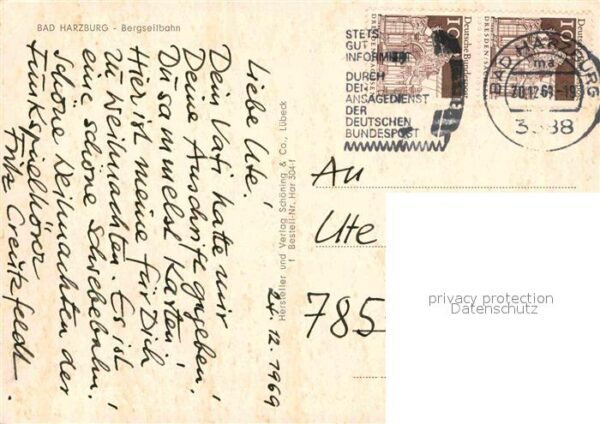 BAD HARZBURG - Bergseilbahn
24. 12. 1969
Liebe Ute.
Dein Vati hatte mir
Deine Anschrift gegeben!
Du sammelst Karten!
Hier ist meine für Dich
zu Weihnachten. Es ist
eine schöne Schwebebahn.
Schöne Weihnachten der
Funkspielhörer
Fritz Creutzfeldt.
Hersteller und Verlag Schöning & Co., Lübeck
Bestell-Nr. Har 304
STETS
GUT
INFORMIERT
DURCH
DEN
ANSAGEDIENST
DER
DEUTSCHEN
BUNDESPOST
Deutsche Bundespost
10
DRESDEN/SACHSEN
Deutsche Bundespost
10
DRESDEN/SACHSEN
BAD HARZBURG
ma
20.12.69-19
3388
An
Ute
785
privacy protection
Datenschutz